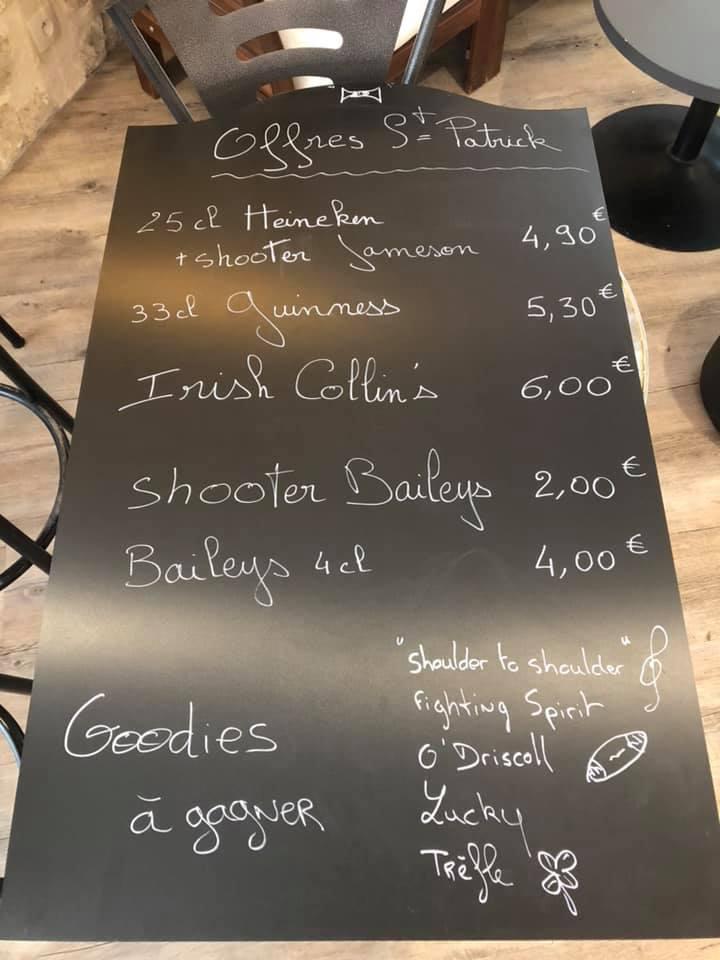 Offres St Patrick
25 cl Heineken
+ shooter Jameson 4,90€
33cl Guinness 5,30€
Irish Collin's 6,00€
Shooter Baileys 2,00€
Baileys 4cl 4,00€
"Shoulder to shoulder"
Fighting Spirit
Goodies
O'Driscoll
à gagner
Lucky
Trèfle